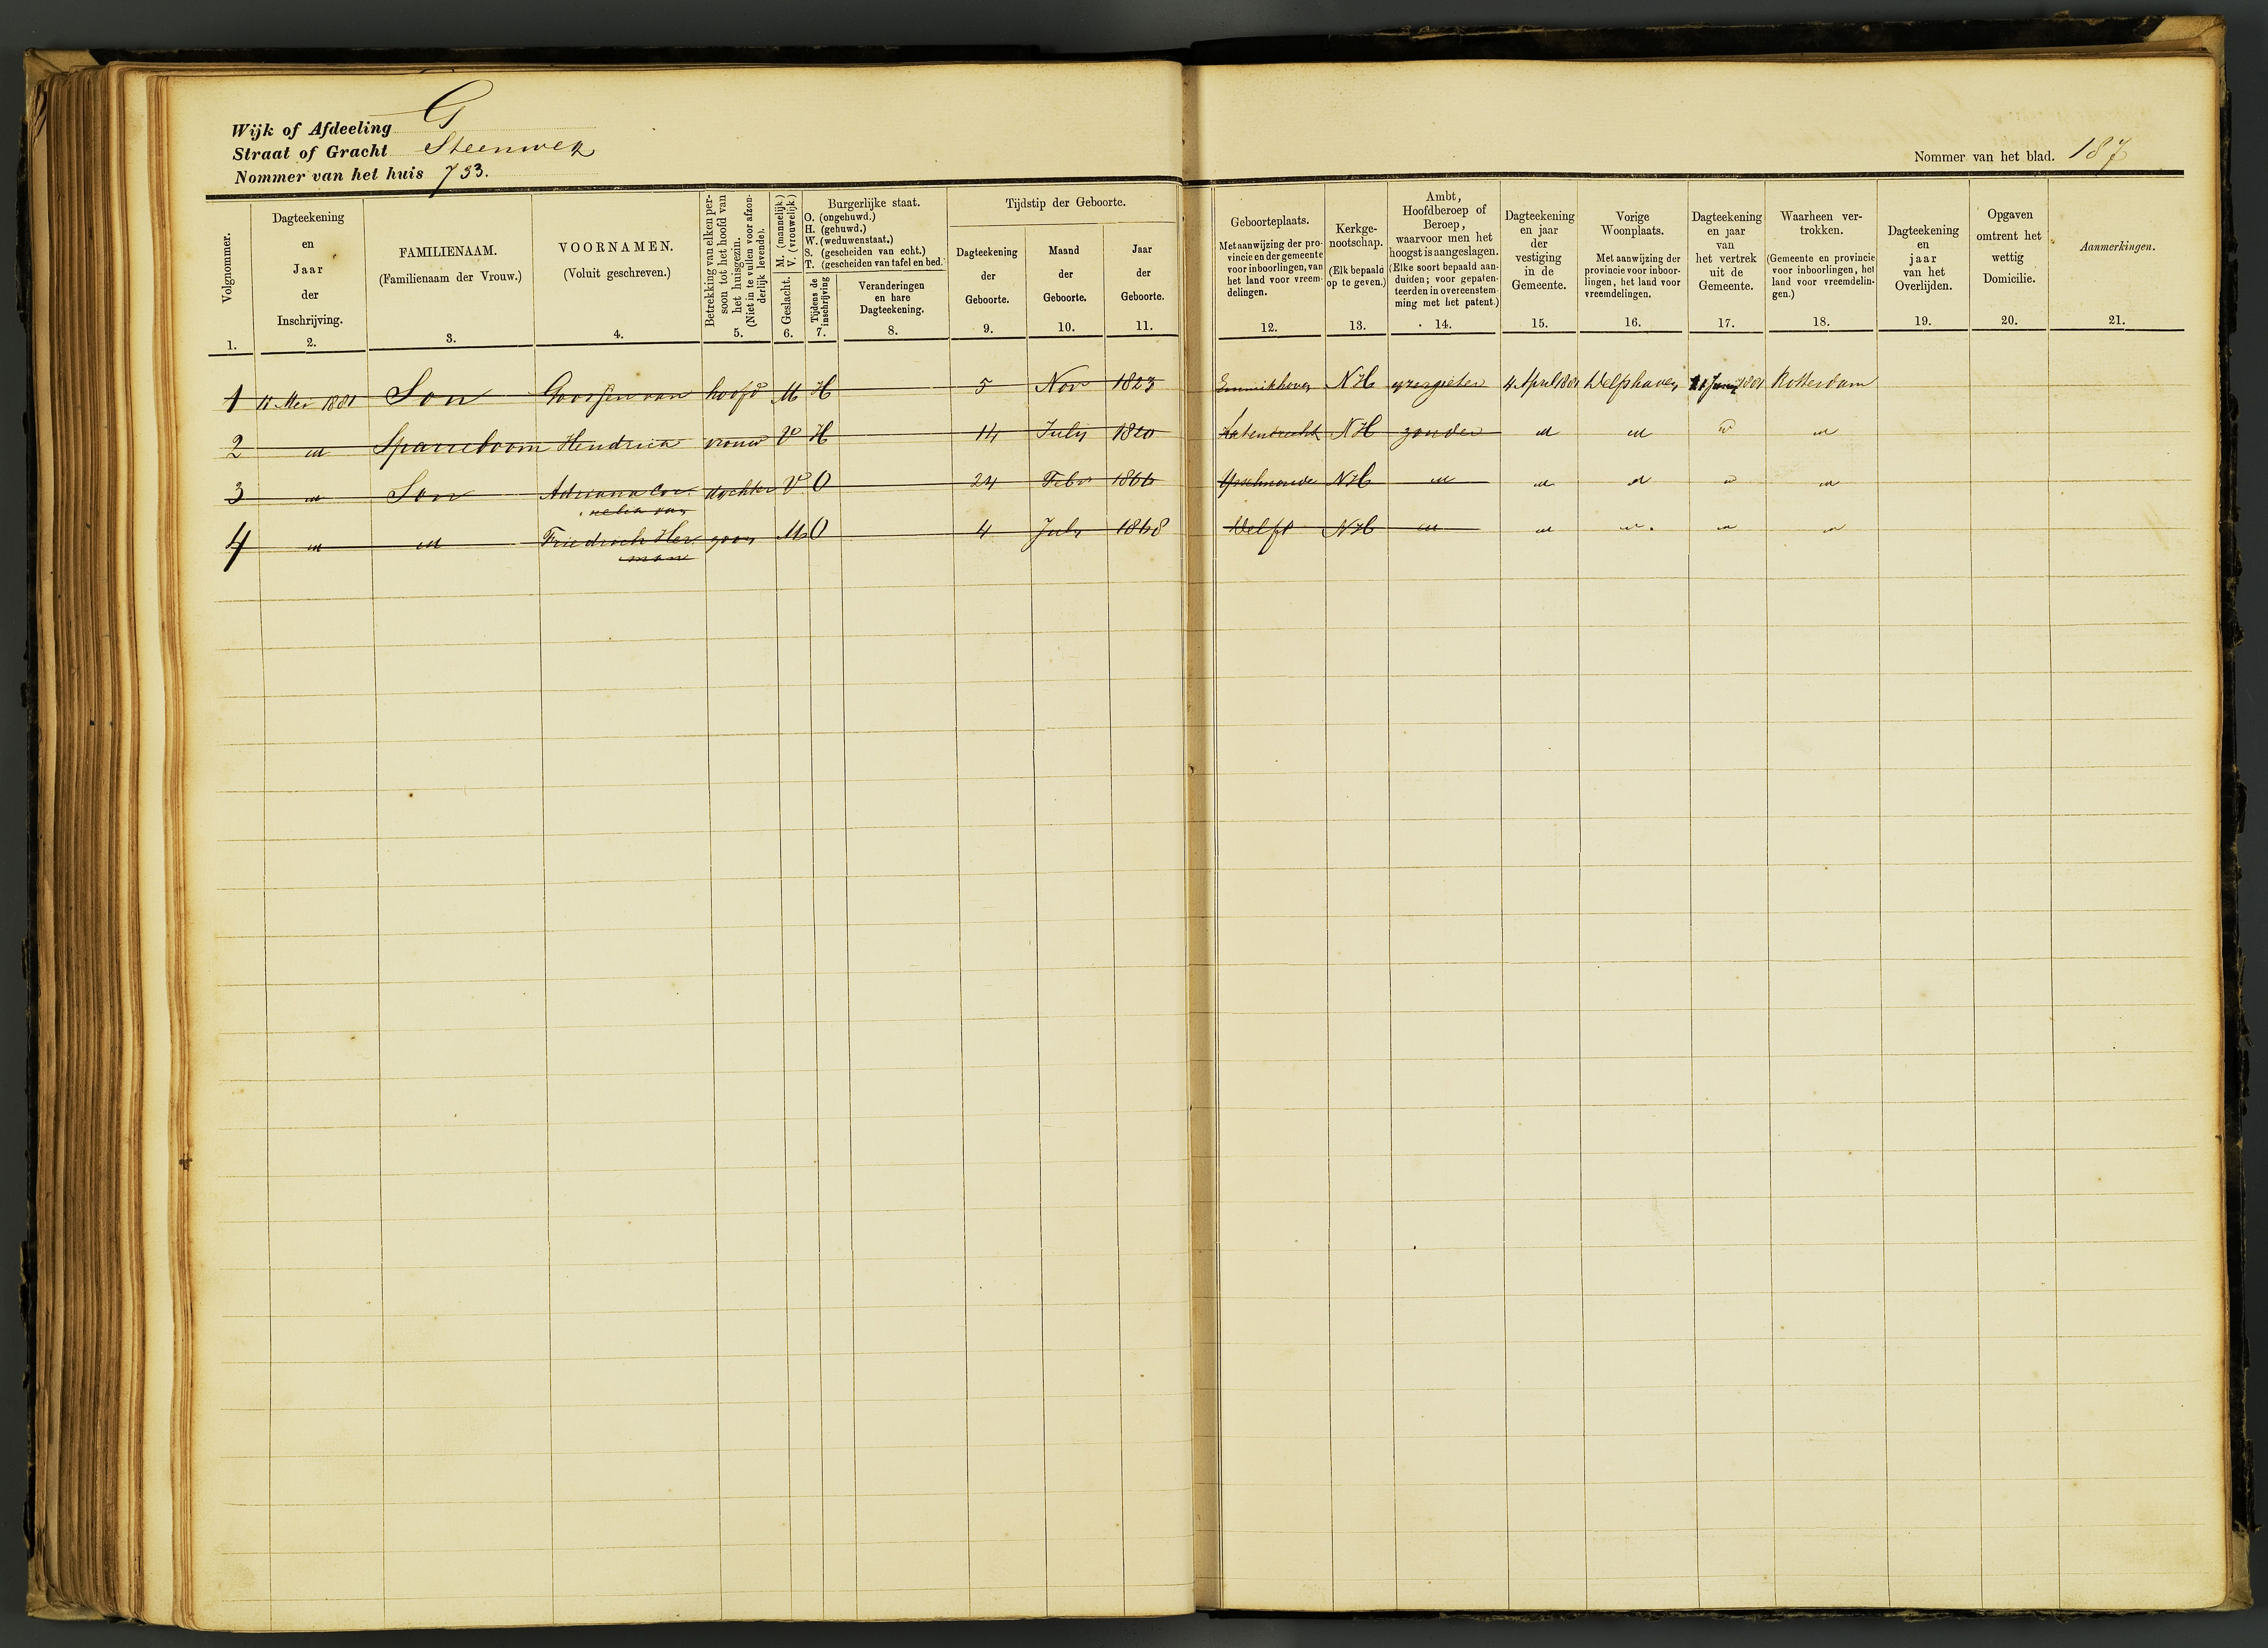 Wijk of Afdeeling G
Straat of Gracht Steenweg
Nommer van het huis 733.
Nommer van het blad. 187
Volgnommer.
1.
Dagteekening
en
Jaar
der
Inschrijving.
2.
FAMILIENAAM.
(Familienaam der Vrouw.)
3.
VOORNAMEN.
(Voluit geschreven.)
4.
Betrekking van elken per-
soon tot het hoofd van
het huisgezin.
(Niet in te vullen voor afzon-
derlijk levende).
5.
Geslacht. M. (mannelijk.)
V. (vrouwelijk.)
6.
Burgerlijke staat.
O. (ongehuwd.)
H. (gehuwd.)
W. (weduwenstaat.)
S. (gescheiden van echt.)
T. (gescheiden van tafel en bed.
Tijdens de
inschrijving
7.
Veranderingen
en hare
Dagteekening.
8.
Tijdstip der Geboorte.
Dagteekening
der
Geboorte.
9.
Maand
der
Geboorte.
10.
Jaar
der
Geboorte.
11.
Geboorteplaats.
Met aanwijzing der pro-
vincie en der gemeente
voor inboorlingen, van
het land voor vreem-
delingen.
12.
Kerkge-
nootschap.
(Elk bepaald
op te geven.)
13.
Ambt,
Hoofdberoep of
Beroep,
waarvoor men het
hoogst is aangeslagen.
(Elke soort bepaald aan-
duiden; voor gepaten-
teerden in overeenstem-
ming met het patent.)
14.
Dagteekening
en jaar
der
vestiging
in de
Gemeente.
15.
Vorige
Woonplaats.
Met aanwijzing der
provincie voor inboor-
lingen, het land voor
vreemdelingen.
16.
Dagteekening
en jaar
van
het vertrek
uit de
Gemeente.
17.
Waarheen ver-
trokken.
(Gemeente en provincie
voor inboorlingen, het
land voor vreemdelin-
gen.)
18.
Dagteekening
en
jaar
van het
Overlijden.
19.
Opgaven
omtrent het
wettig
Domicilie.
20.
Aanmerkingen.
21.
1 11 Mei 1881 Son Goossen van hoofd M H 5 Nov 1823 Emmikhoven NH yzergieter 4 April 1881 Delfshaven Juny 1881 Rotterdam
2 id Sparreboom Hendrica vrouw V H 14 July 1820 Katendrecht NH zonder id id id id
3 id Son Adriana Cor- dochter V O 24 Febr 1866 Ysselmonde NH id id id id id
nelia van
4 id id Friedrich Her- zoon M O 4 July 1868 Delft NH id id id id id
man